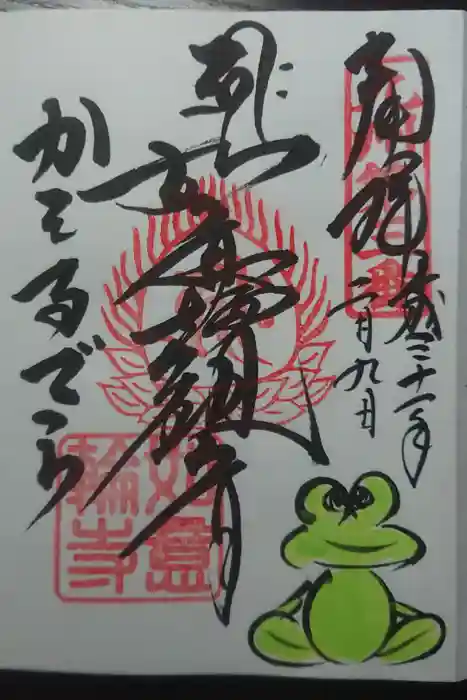 奉拝
成三十一年
二月九日
如意輪観音
かえるでら
如意
輪寺